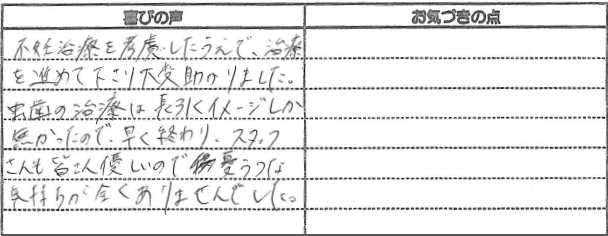 喜びの声
お気づきの点
不妊治療を考慮したうえで、治療
を進めて下さり大変助かりました。
虫歯の治療は長引くイメージしか
無かったので、早く終わり、スタッフ
さんも皆さん優しいので憂うつな
気持ちが全くありませんでした。